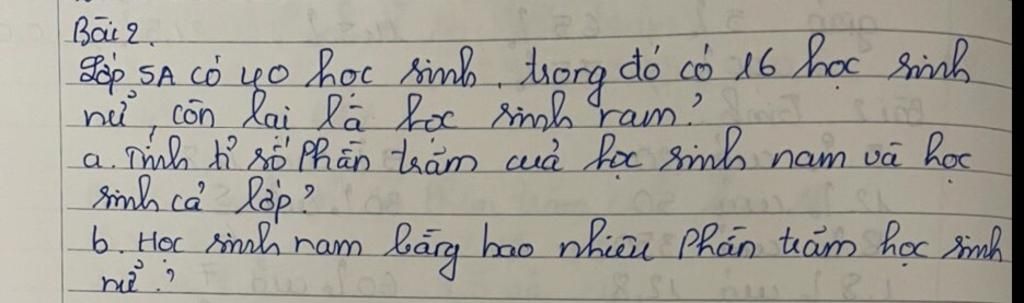 Bài 2.
Lớp 5A có 40 học sinh, trong đó có 16 học sinh
nữ, còn lại là học sinh nam?
a. Tính tỉ số phần trăm của học sinh nam và học
sinh cả lớp?
b. Học sinh nam bằng bao nhiêu phần trăm học sinh
nữ?